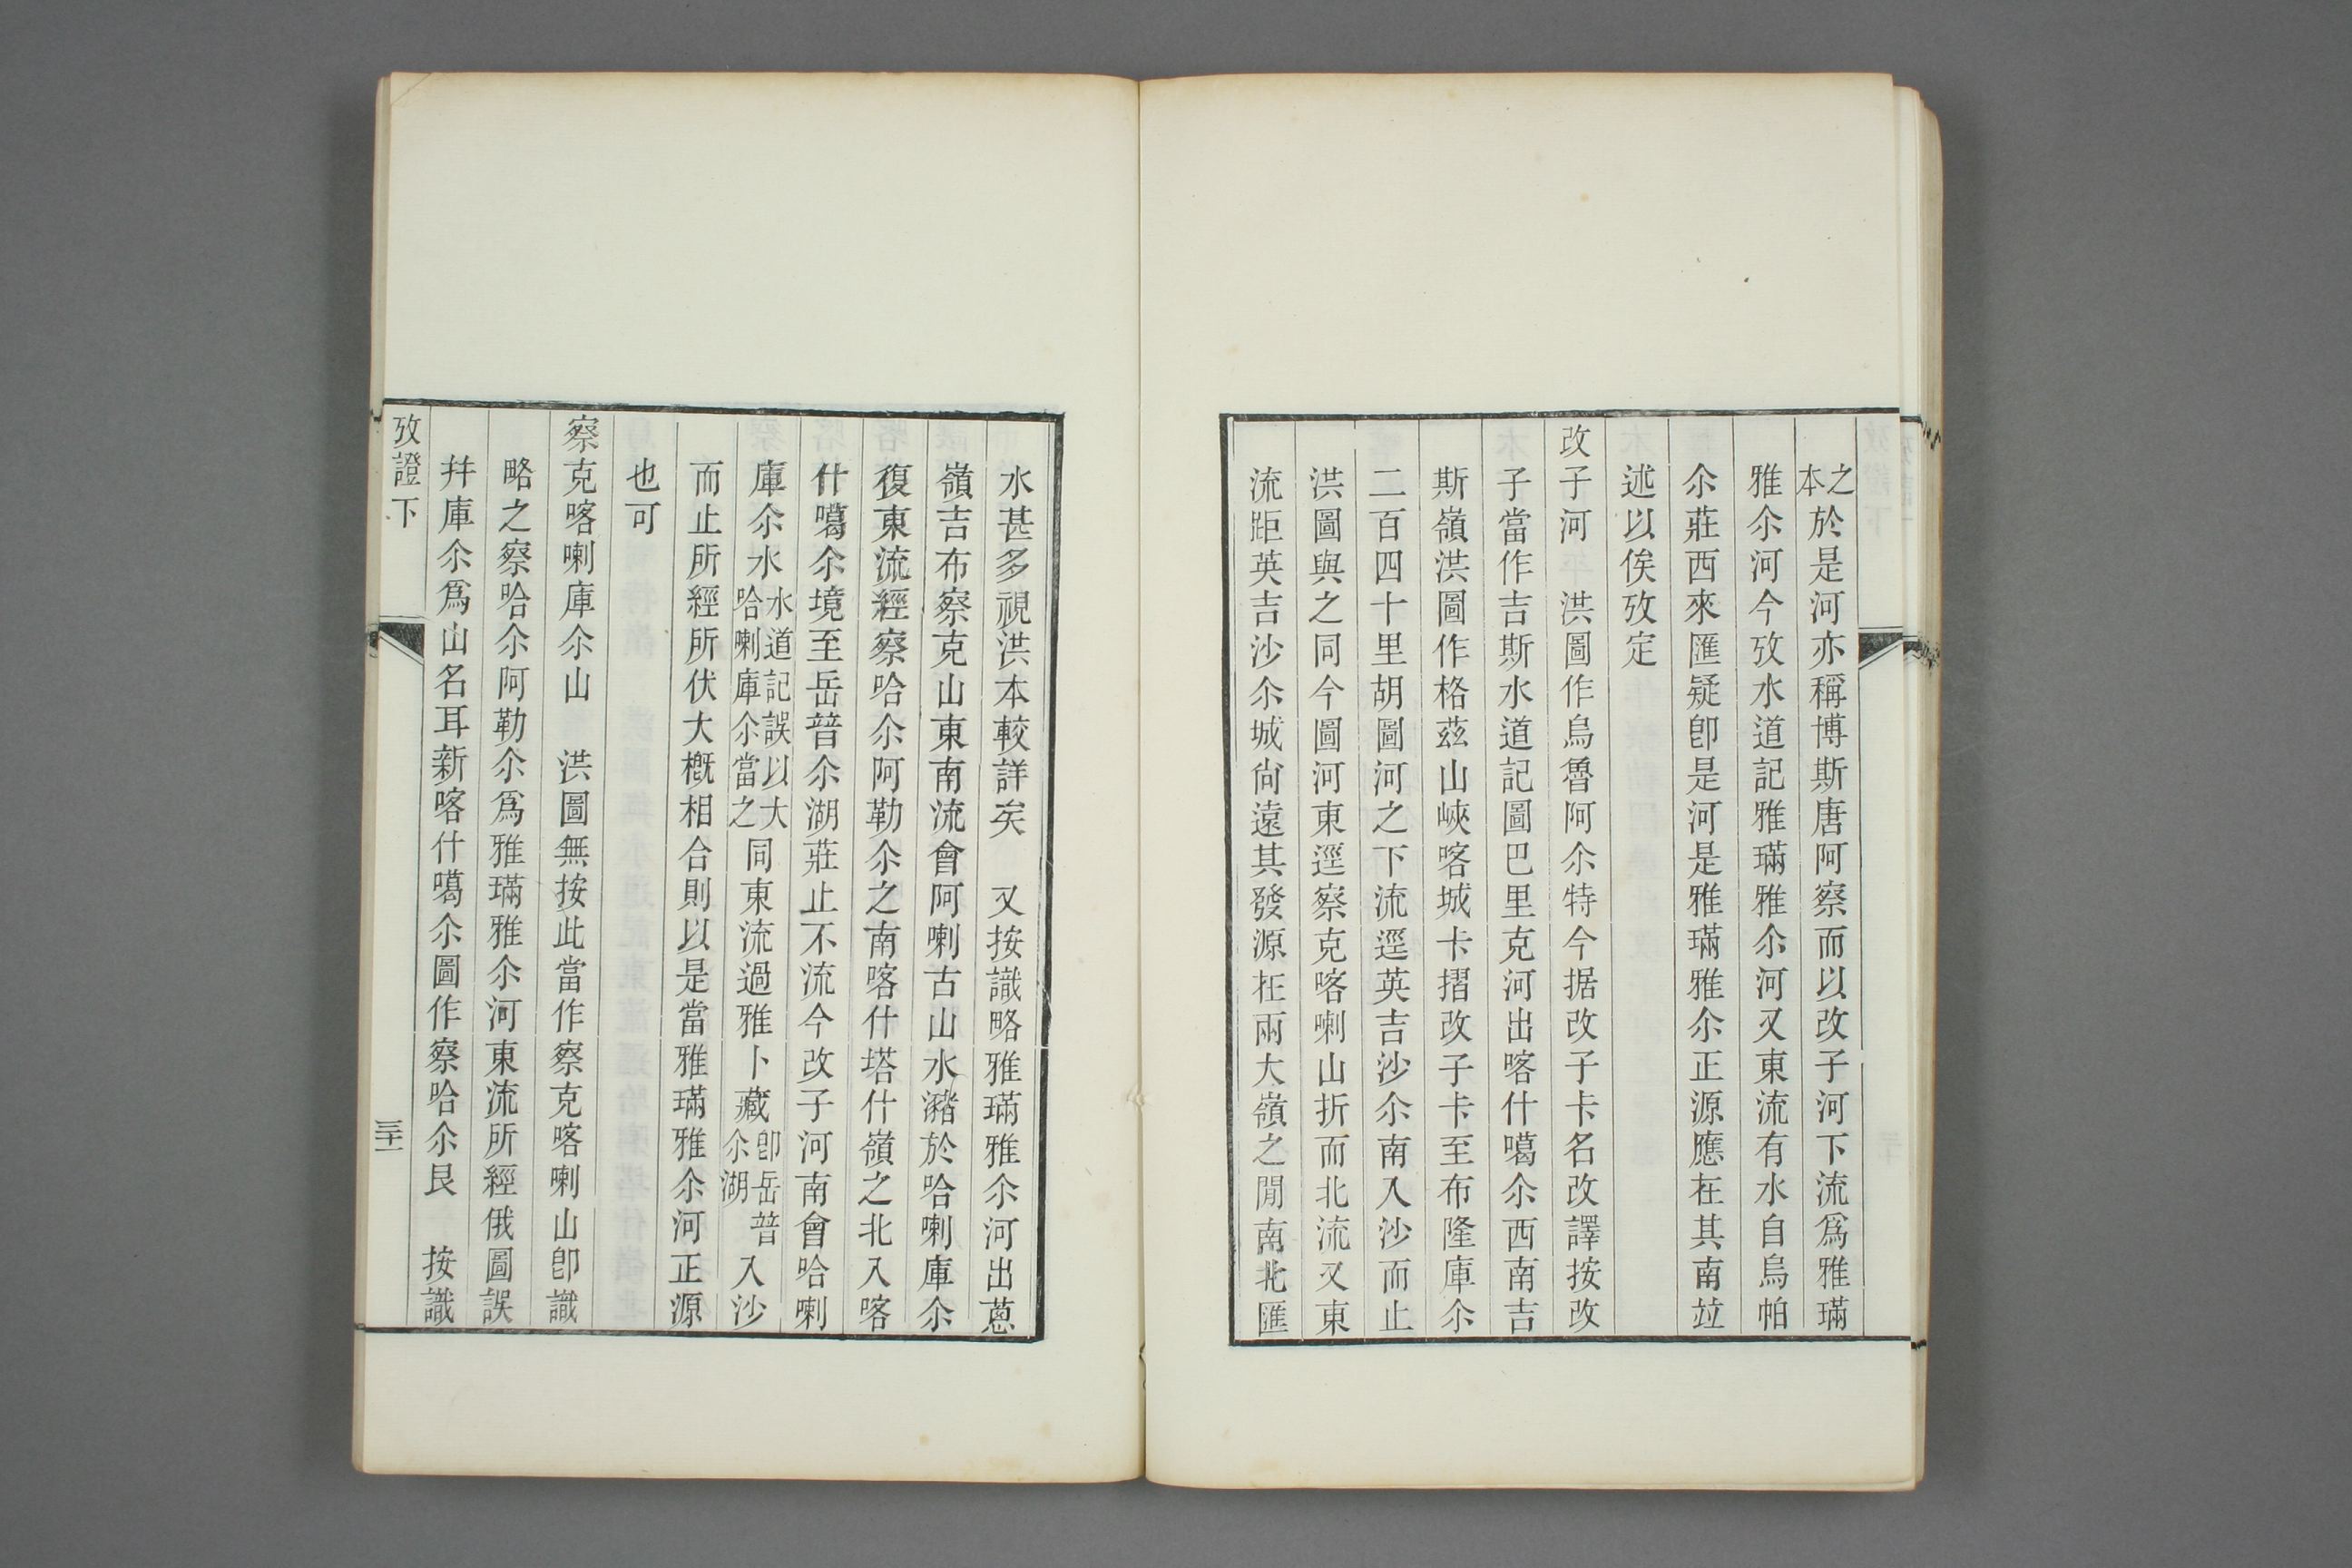 之本於是河亦稱博斯唐阿察而以改子河下流爲雅璊
雅尒河今攷水道記雅璊雅尒河又東流有水自烏帕
尒莊西來匯疑卽是河是雅璊雅尒正源應在其南竝
述以俟攷定
改子河　洪圖作烏魯阿尒特今据改子卡名改譯按改
子當作吉斯水道記圖巴里克河出喀什噶尒西南吉
斯嶺洪圖作格茲山峽喀城卡摺改子卡至布隆庫尒
二百四十里胡圖河之下流逕英吉沙尒南入沙而止
洪圖與之同今圖河東逕察克喀喇山折而北流又東
流距英吉沙尒城尙遠其發源在兩大嶺之閒南北匯
水甚多視洪本較詳矣　又按識略雅璊雅尒河出蔥
嶺吉布察克山東南流會阿喇古山水瀦於哈喇庫尒
復東流經察哈尒阿勒尒之南喀什塔什嶺之北入喀
什噶尒境至岳普尒湖莊止不流今改子河南會哈喇
庫尒水水道記誤以大哈喇庫尒當之同東流過雅卜藏卽岳普尒湖入沙
而止所經所伏大槪相合則以是當雅璊雅尒河正源
也可
察克喀喇庫尒山　洪圖無按此當作察克喀喇山卽識
略之察哈尒阿勒尒爲雅璊雅尒河東流所經俄圖誤
幷庫尒爲山名耳新喀什噶尒圖作察哈尒艮　按識
攷證下
三十一